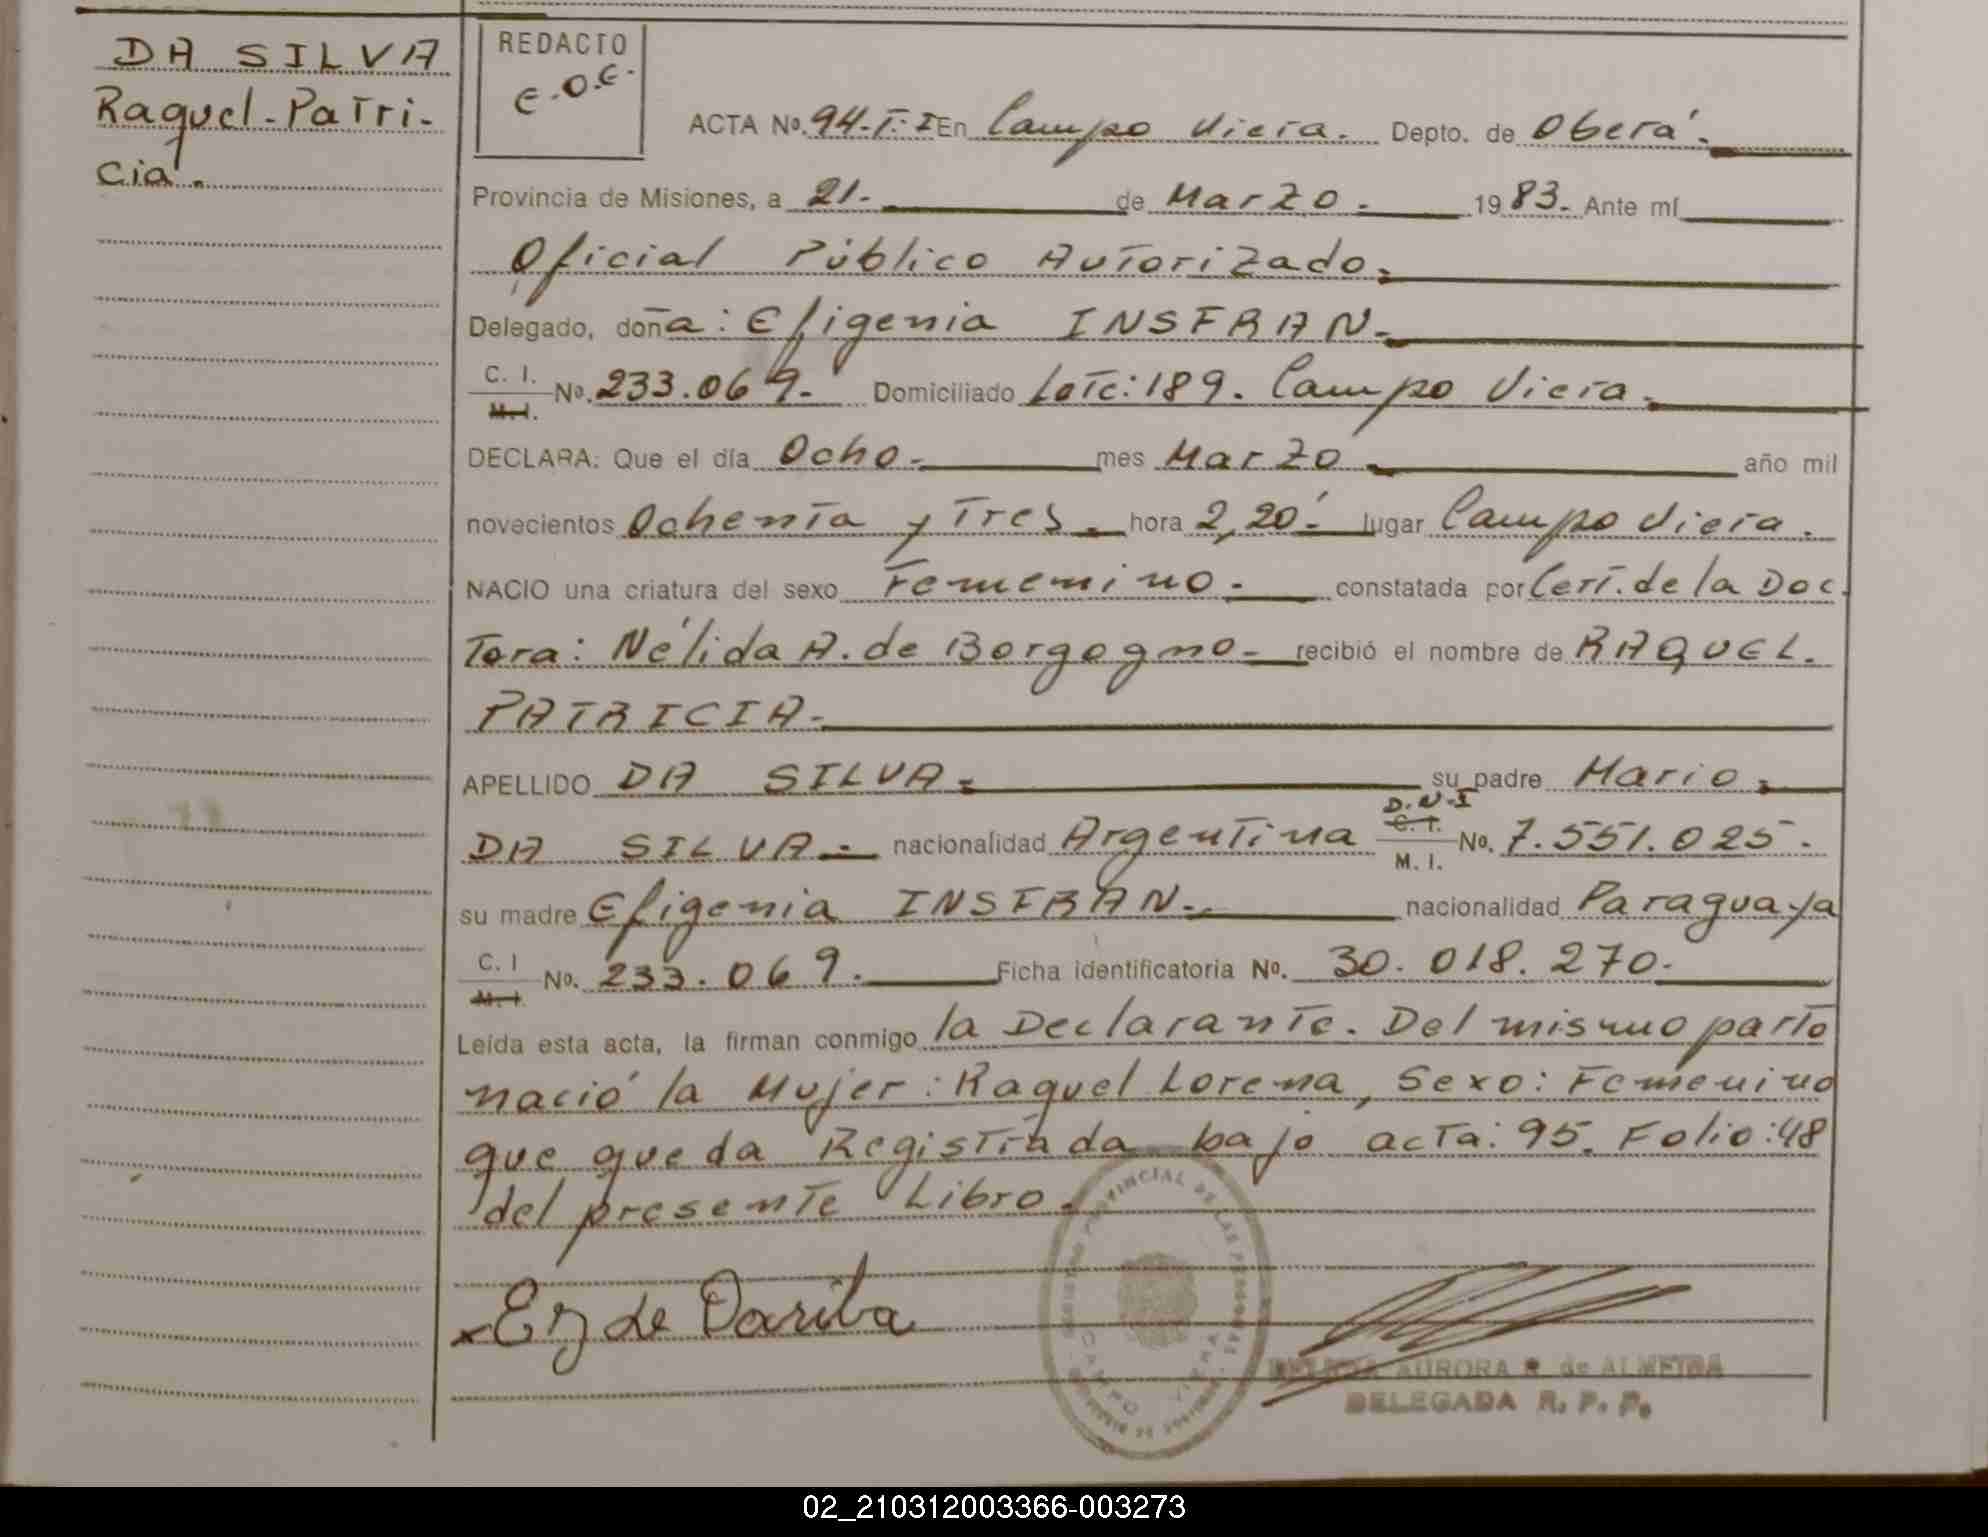 DA SILVA
Raquel-Patri-
cia.
REDACTO
E.O.E.
ACTA Nº. 94-T: I En Campo Viera. Depto. de Oberá.
Provincia de Misiones, a 21. de Marzo. 1983. Ante mí
Oficial Público Autorizado.
Delegado, doña: Efigenia INSFRAN.
C. I. M. I. Nº. 233.069. Domiciliado Lote: 189. Campo Viera.
DECLARA: Que el día Ocho. mes Marzo año mil
novecientos Ochenta y Tres. hora 2,20. lugar Campo Viera.
NACIO una criatura del sexo Femenino. constatada por Cert. de la Doc
Tora: Nélida A. de Borgogno. recibió el nombre de RAQUEL.
PATRICIA.
APELLIDO DA SILVA. su padre Mario.
DA SILVA. nacionalidad Argentina D.N.I C. I. M. I. Nº. 7.551.025.
su madre Efigenia INSFRAN. nacionalidad Paraguaya
C. I M. I Nº. 233.069. Ficha identificatoria Nº. 30.018.270.
Leída esta acta, la firman conmigo la Declarante. Del mismo parto
nació la Mujer: Raquel Lorena, Sexo: Femenino
que queda Registrada bajo acta: 95. Folio: 48
del presente Libro.
PROVINCIAL DE LAS PERSONAS
CAMPO VIERA
AURORA R. de ALMEIDA
DELEGADA R. P. P.
02_210312003366-003273